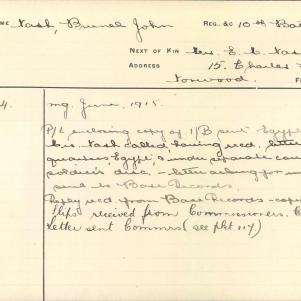 ME Nash, Brunel John REG. &C 10th Bat
NEXT OF KIN Mrs. E. C. Nas
ADDRESS 15, Charles
Norwood.
4. mg. June, 1915.
P/L enclosing copy of 1/B sent Egypt
Mrs Nash called, having recd. letter
quarters, Egypt, & under separate cov
soldier's disc, – letter asking for
sent to Base Records.
Reply recd. from Base Records – cop
slips received from Commissioners.
letter sent Commrs (see pkt 117)